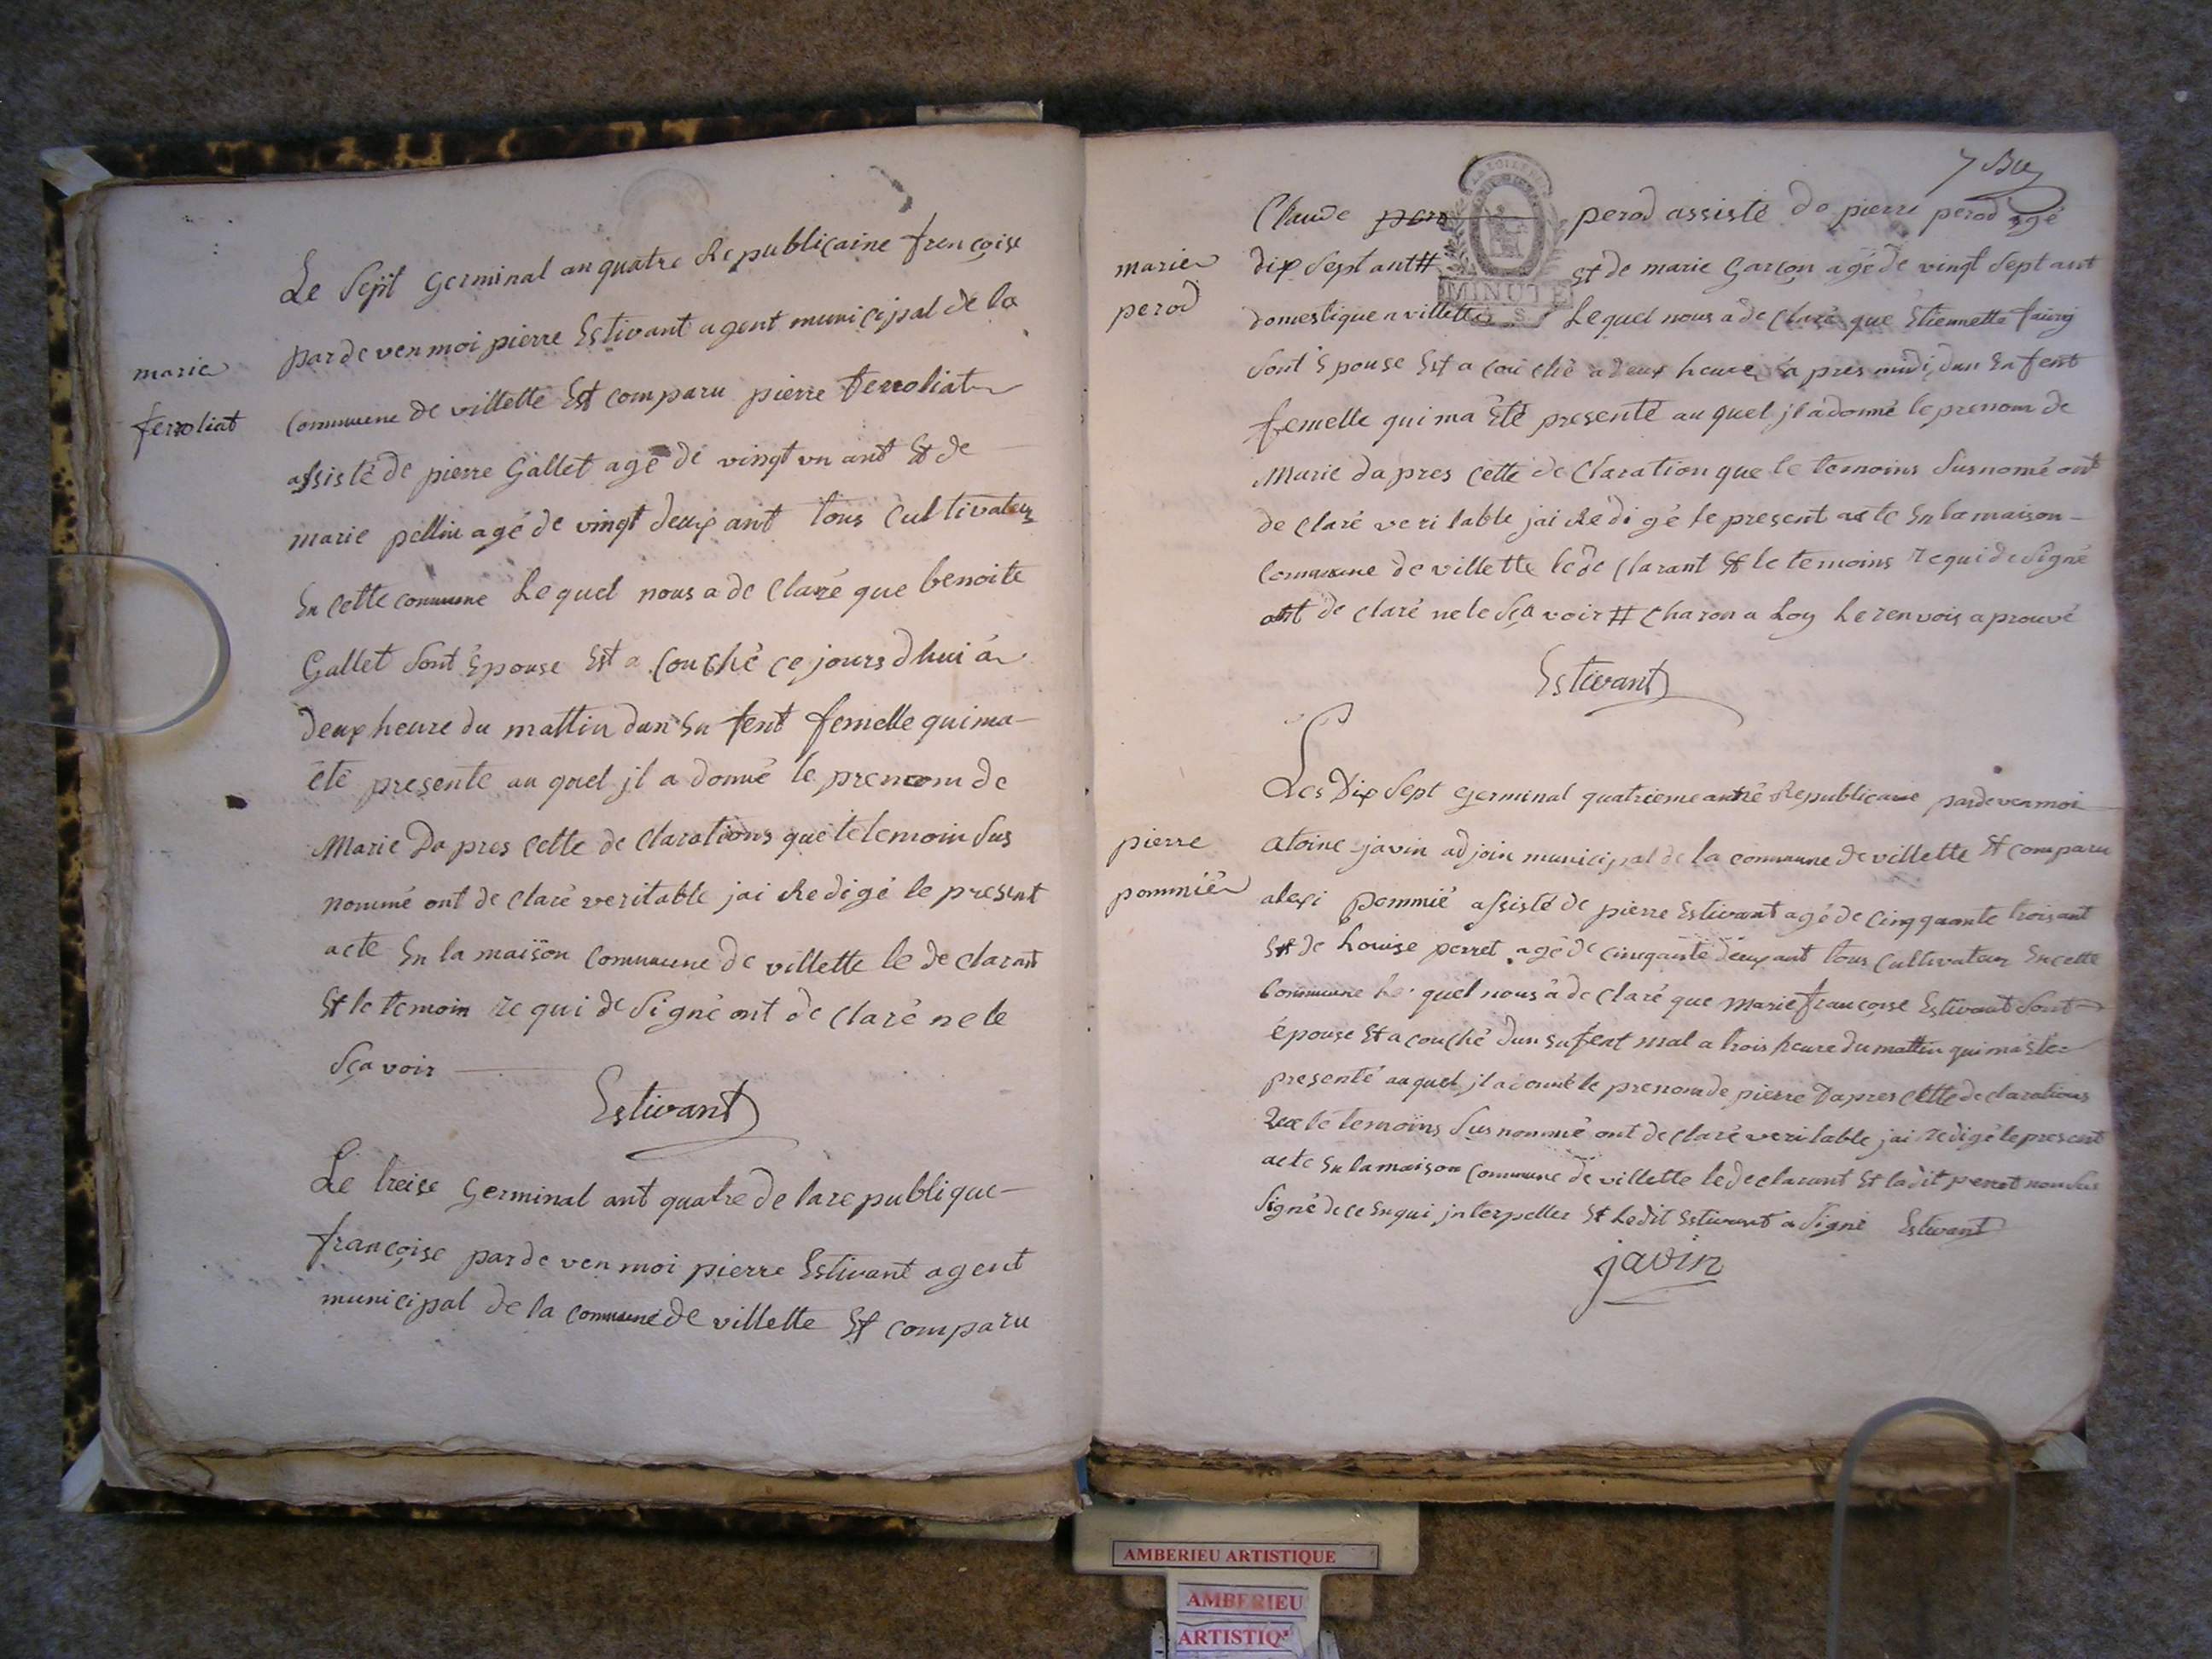 Le Sept germinal an quatre Republicaine françoise
par de ven moi pierre Estivant agent municipal de la
marie
ferroliat
commune de villette Est comparu pierre ferroliat
assisté de pierre Gallet agé de vingt un ant Et de
marie pellin agé de vingt deux ant tous Cultivateur
En cette commune Le quel nous a de Claré que benoite
Gallet Sont Epouse Est a Couché ce jours dhui a
deux heure du mattin dun En fent femelle qui ma
été presenté au quel jl a donné le prenom de
Marie Da pres cette de Clarations que le temoin Sus
nommé ont de Claré veritable jai Redigé le present
acte En la maison Commune de villette le de clarant
Et le temoin re qui de Signé ont de claré ne le
Sça voir
Estivant
Le treise germinal ant quatre de la re publique
françoise par de ven moi pierre Estivant agent
municipal de la commune de villette Et comparu
7
Claude perod assisté de pierre perod agé
marie
perod
dix Sept ant # Et de marie Garçon agé de vingt Sept ant
domestique a villette Le quel nous a de Claré que Etiennette
Sont Epouse Est a Couché a deux heure a pres midi dun En fent
femelle qui ma Eté presenté au quel jl a donné le prenom de
Marie da pres cette de Claration que le temoins Susnomé ont
de Claré veri table jai Re di gé le present acte En la maison
Commune de villette le de clarant Et le temoins re qui de Signé
ont de claré ne le Sça voir # Charon a Loy Le renvois a prouvé
Estivant
Les Dix Sept germinal quatrieme année Republicane pardevenmoi
pierre
pommié
atoine javin adjoin municipal de la commune de villette Et comparu
alexi pommié assisté de pierre Estivant agé de cinqquante troisant
Et de Louise perret agé de cinquante deux ant tous Cultivateur En cette
Commune Le quel nous a de claré que Marie françoise Estivant Sont
épouse Et a couché dun En fent mal a trois heure du mattin qui ma Eté
presenté au quel jl a donné le prenom de pierre Dapres cette de clarations
que le temoins Sus nommé ont de claré veritable jai redigé le present
acte En la maison Commune de villette le de clarant Et la dit perret non Sus
Signé de ce Enqui jnterpeller Et Ledit Estivant a Signé Estivant
javin
MINUTE
AMBERIEU ARTISTIQUE
AMBERIEU
ARTISTIQ